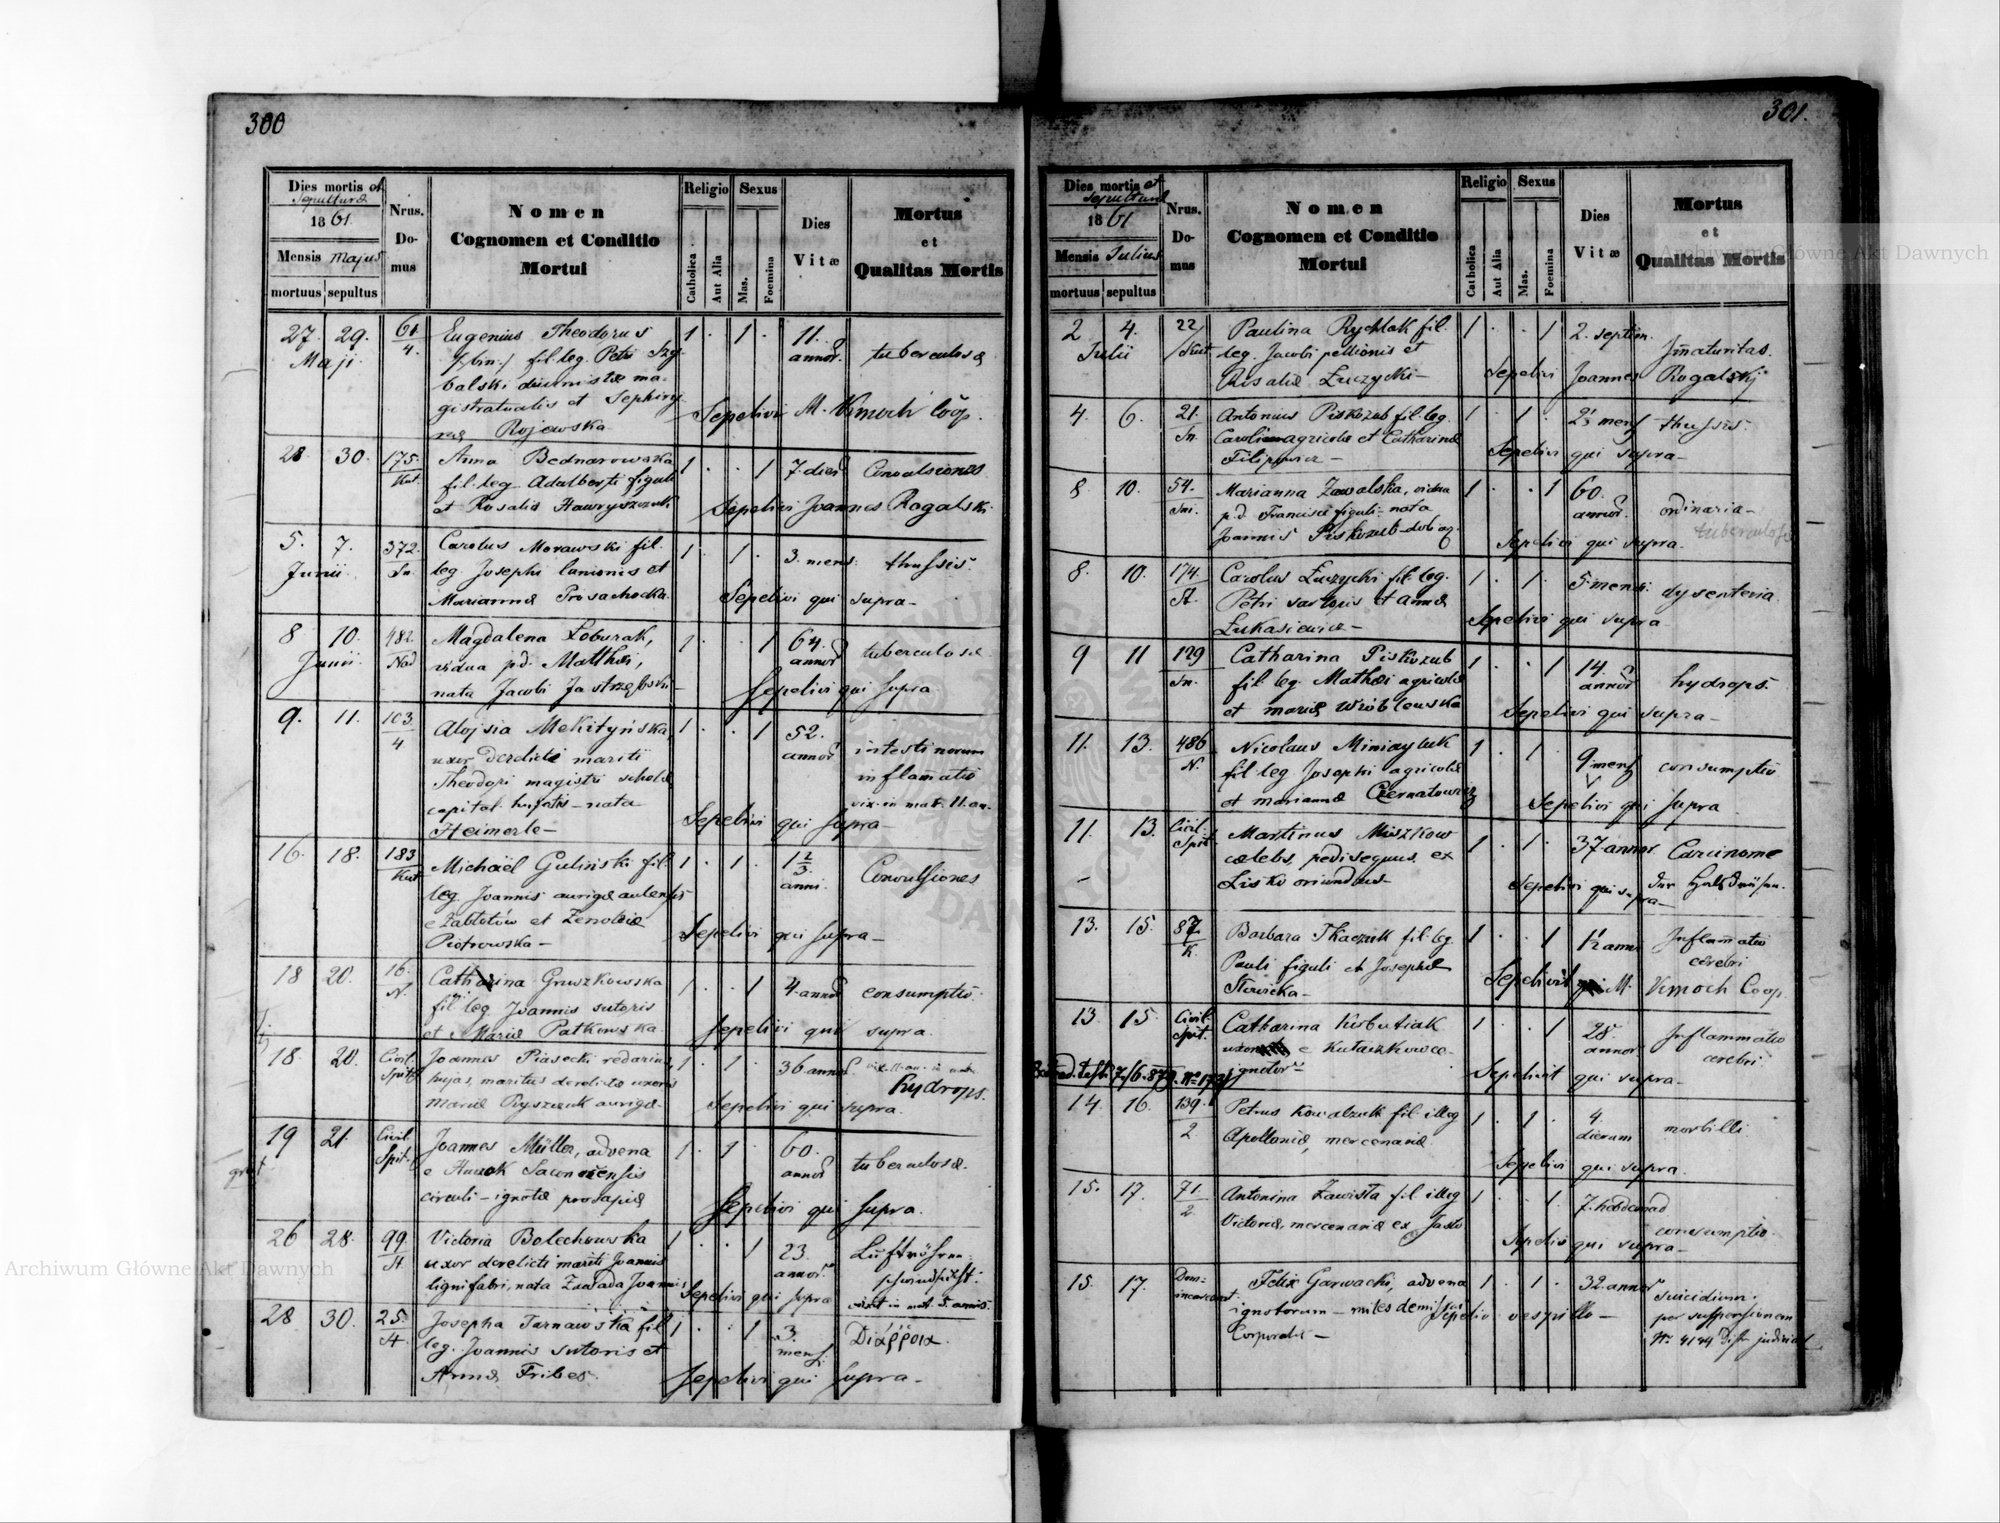 300
Dies mortis et
Sepulturæ
1861.
Mensis Majus
mortuus sepultus
Nrus.
Do-
mus
Nomen
Cognomen et Conditio
Mortui
Religio
Catholica
Aut Alia
Sexus
Mas.
Foemina
Dies
Vitæ
Mortus
et
Qualitas Mortis
27. 29. 61. Eugenius Theodorus 1 . 1 . 11.
Maji 4. /bin./ fil. leg. Petri annor. tuberculosæ
balski diurnistæ ma-
gistratualis et
Rojewska Sepelivi M. coop.
28 30. 175. Anna Bednarowska 1 . . 1 7. dier. Convulsiones
Kut. fil. leg. Adalberti figuli
et Rosaliæ Sepelivi Joannes Rogalski.
5. 7. 372. Carolus Morawski fil. 1 . 1 . 3. mens: thussis.
Junii Sn. leg. Josephi lanionis et
Mariannæ Prosachocka Sepelivi qui supra –
8 10. 482. Magdalena Łoburak, 1 . . 1 64. tuberculosæ
Junii Nad vidua p.d. Matthæi, annor.
nata Jacobi Jastrzębski – Sepelivi qui supra
9. 11. 103. Alojsia Mekityńska, 1 . . 1 52. intestinorum
4 uxor derelicta mariti annor. inflamatio
Theodori magistri scholæ vix. in mat. 11. an.
capital. hujatis – nata Sepelivi qui supra –
Heimerle –
16. 18. 183 Michaël Guliński fil. 1 . 1 . 1 2/3 Convulsiones
Kut leg. Joannis aurigæ anni.
e Zabłotów et Zenobiæ
Piotrowska – Sepelivi qui supra –
18 20. 16. Catharina Gruszkowska 1 . . 1 4. annor consumptio.
N. fil. leg. Joannis sutoris
et Mariæ Patkowska Sepelivi qui supra.
18. 20. Civil. Joannes Piasecki redarius 1 . 1 . 36 annor
Spit. hujas, maritus derelictæ uxoris hydrops.
Mariæ aurigæ. Sepelivi qui supra.
19 21. Civil. Joannes Müller, advena 1 . 1 . 60. tuberculosæ.
Spit. e annor
circuli – ignotæ prosapiæ Sepelivi qui supra.
26 28. 99 Victoria Bolechowska 1 . . 1 23. Luftröhren-
H uxor derelicti mariti Joannis annor. schwindsucht.
lignifabri, nata Zawada Joannis Sepelivi qui supra vixit in mat. 5. annis.
28 30. 25. Josepha Tarnawska fil 1 . . 1 3. Διάρροια.
H leg. Joannis sutoris et mens.
Annæ Fribes. Sepelivi qui supra –
301.
Dies mortis et
Sepulturæ
1861
Mensis Julius
mortuus sepultus
Nrus.
Do-
mus
Nomen
Cognomen et Conditio
Mortui
Religio
Catholica
Aut Alia
Sexus
Mas.
Foemina
Dies
Vitæ
Mortus
et
Qualitas Mortis
2 4. 22/ Paulina Rychlak fil. 1 . . 1 2. septim. Immaturitas.
Julii /Kut leg. Jacobi pellionis et
Rosaliæ Łuczycki – Sepelivi Joannes Rogalski
4. 6. 21. Antonius Piskozub fil. leg. 1 . 1 . 2½ mens thussis.
Sn. Caroli agricolæ et Catharinæ
Filipowicz – Sepelivi qui supra –
8 10. 54. Marianna Zawalska, vidua 1 . . 1 60. ordinaria –
Sni. p.d. Francisci figuli – nata annor. tuberculosis
Joannis Piskozub Sepelivi qui supra.
8. 10. 174. Carolus Łuczycki fil. leg. 1 . 1 . 5. mensi. dysenteria.
St. Petri sartoris et Annæ
Łukasiewicz – Sepelivi qui supra –
9 11 129 Catharina Piskozub 1 . . 1 14. hydrops.
Sn. fil. leg. Mathæi agricolæ annor
et mariæ Wróblewska Sepelivi qui supra –
11. 13. 486 Nicolaus Miniayluk 1 . 1 . 9 mens consumptio
N. fil. leg. Josephi agricolæ
et mariannæ Czernatowicz Sepelivi qui supra
11. 13. Civil. Martinus Miszkow 1 . 1 . 37 annor. Carcinome
Spit. cælebs, pedisequus, ex der Halsdrüsen.
Lisko oriundus – Sepelivi qui supra –
13. 15. 87. Barbara Tkaczuk fil. leg. 1 . . 1 1½ anni Inflamatio
K. Pauli figuli et Josephæ cerebri
Sławicka – Sepelivit M. Coop.
13. 15. Civil. Catharina Kurbutiak 1 . . 1 28. Inflammatio
Spit. e Kutaczkowce annor cerebri
ignotor. Sepelivit qui supra –
7/6. 879. Nr
14. 16. 139. Petrus Kowalczuk fil. illeg 1 . 1 . 4. morbilli
2 Apoloniæ, mercenariæ dierum
Sepelivi qui supra.
15. 17. 71 Antonina Zawista fil. illeg 1 . . 1 7. hebdomad consumptio.
2 Victoriæ, mercenariæ ex Jasło Sepelivi qui supra –
15. 17. Dom: Felix Garwacki, advena 1 . 1 . 32 annor suicidium.
incarcerat. ignotorum – miles demissus Sepelio vespillo – per suspensionem
Corporalis – Nr. 4144
Archiwum Główne Akt Dawnych
Archiwum Główne Akt Dawnych